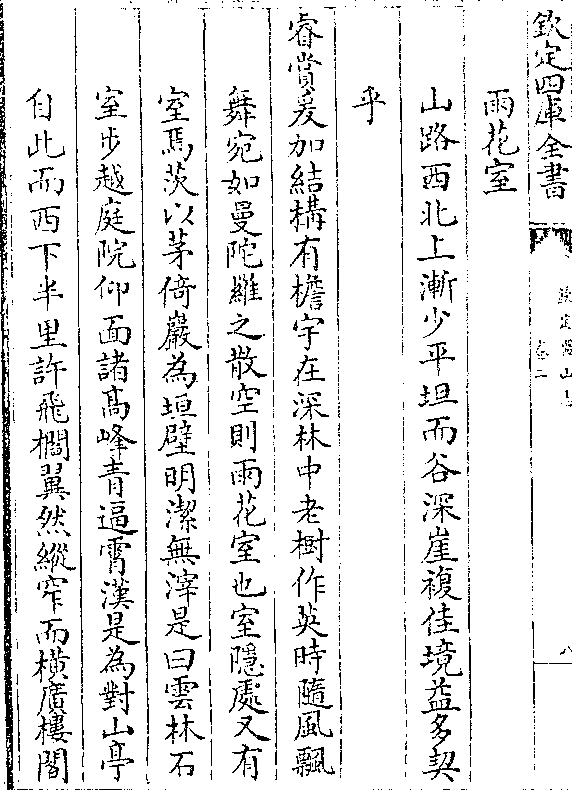 欽定四庫全書
欽定盤山志
卷二
八
雨花室
山路西北上漸少平坦而谷深崖複佳境益多契
乎
睿賞爰加結構有檐宇在深林中老樹作英時隨風飄
舞宛如曼陀羅之散空則雨花室也室隱處又有
室焉茨以茅倚巖為垣壁明潔無滓是曰雲林石
室步越庭院仰面諸髙峰青逼霄漢是為對山亭
自此而西下半里許飛櫩翼然縱窄而横廣樓閣